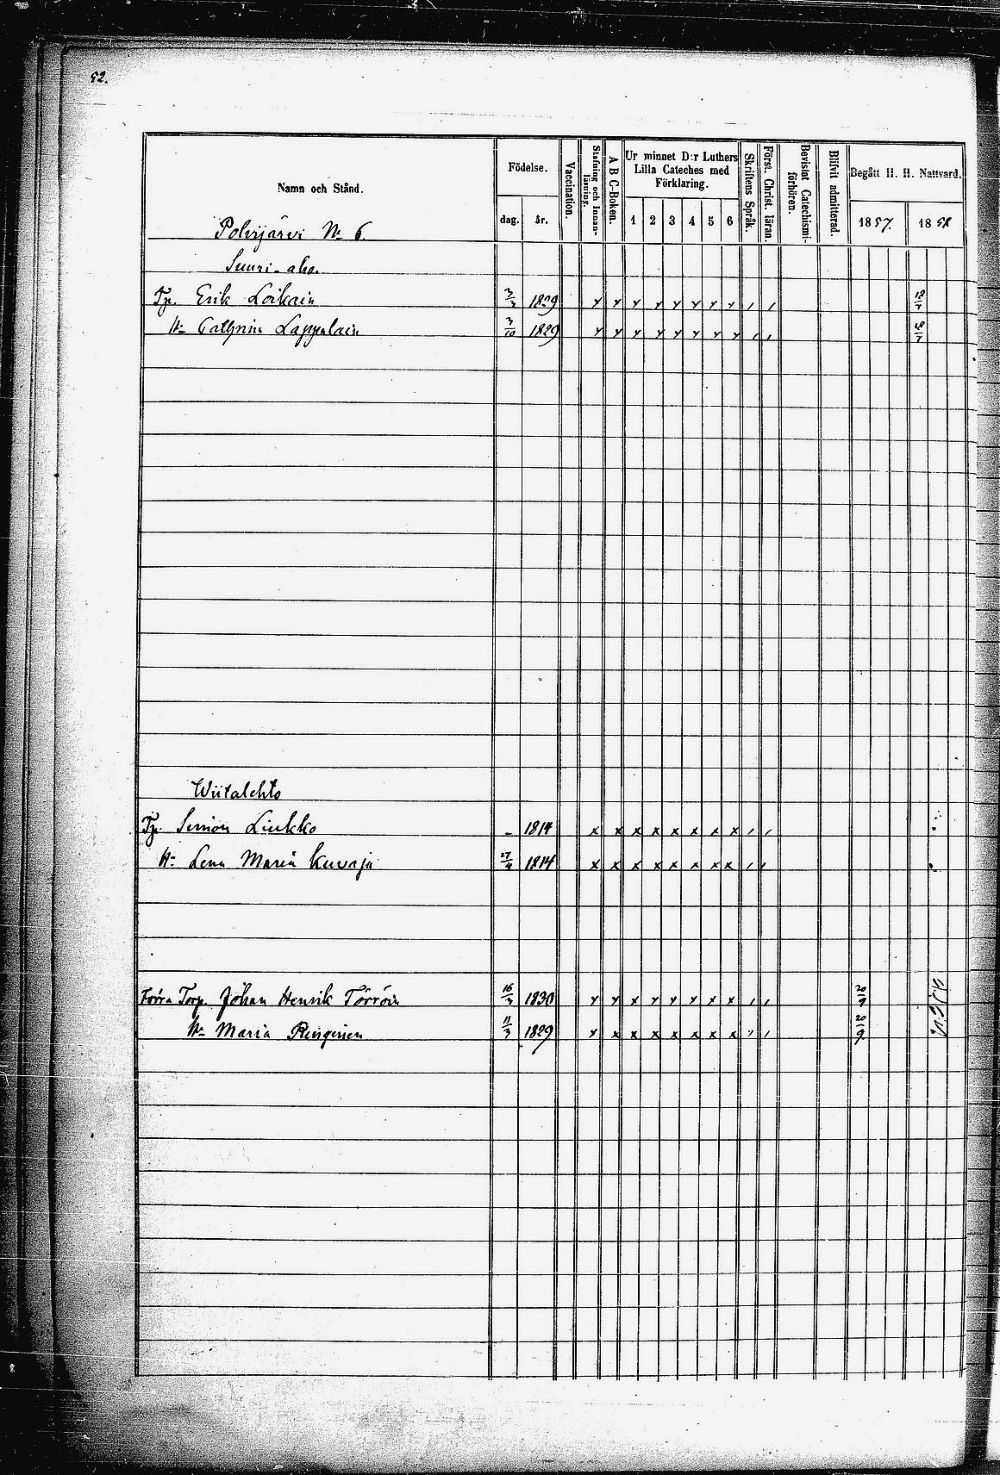 52.
Namn och Stånd. Födelse. Vaccination. Stafning och Innanläsning. A B C-Boken. Ur minnet D:r Luthers Lilla Cateches med Förklaring. Skriftens Språk. Först. Christ. läran. Bevisist Catechismiförhören. Blifvit admitterad. Begått H. H. Nattvard.
dag. år. 1 2 3 4 5 6 1857. 1858
Polvijärvi No 6.
Suuri-aho.
Tp. Erik Loikain 1829 x x x x x x x x / /
H:u Cathrin Lappalain 3/10 1829 x x x x x x x x / /
Wiitalehto
Tp. Simon Liukko - 1814 x x x x x x x x / /
H: Lena Maria Kuvaja 27/4 1814 x x x x x x x x / /
Förra Torp. Johan Henrik Törröin 16/3 1830 x x x x x x x x / / 20/9
H:u Maria Ruginen 11/3 1829 x x x x x x x x / / 20/9